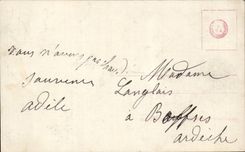 vous n'avez pas
souvenir
adèle
Madame
Langlais
à Boffres
ardèche